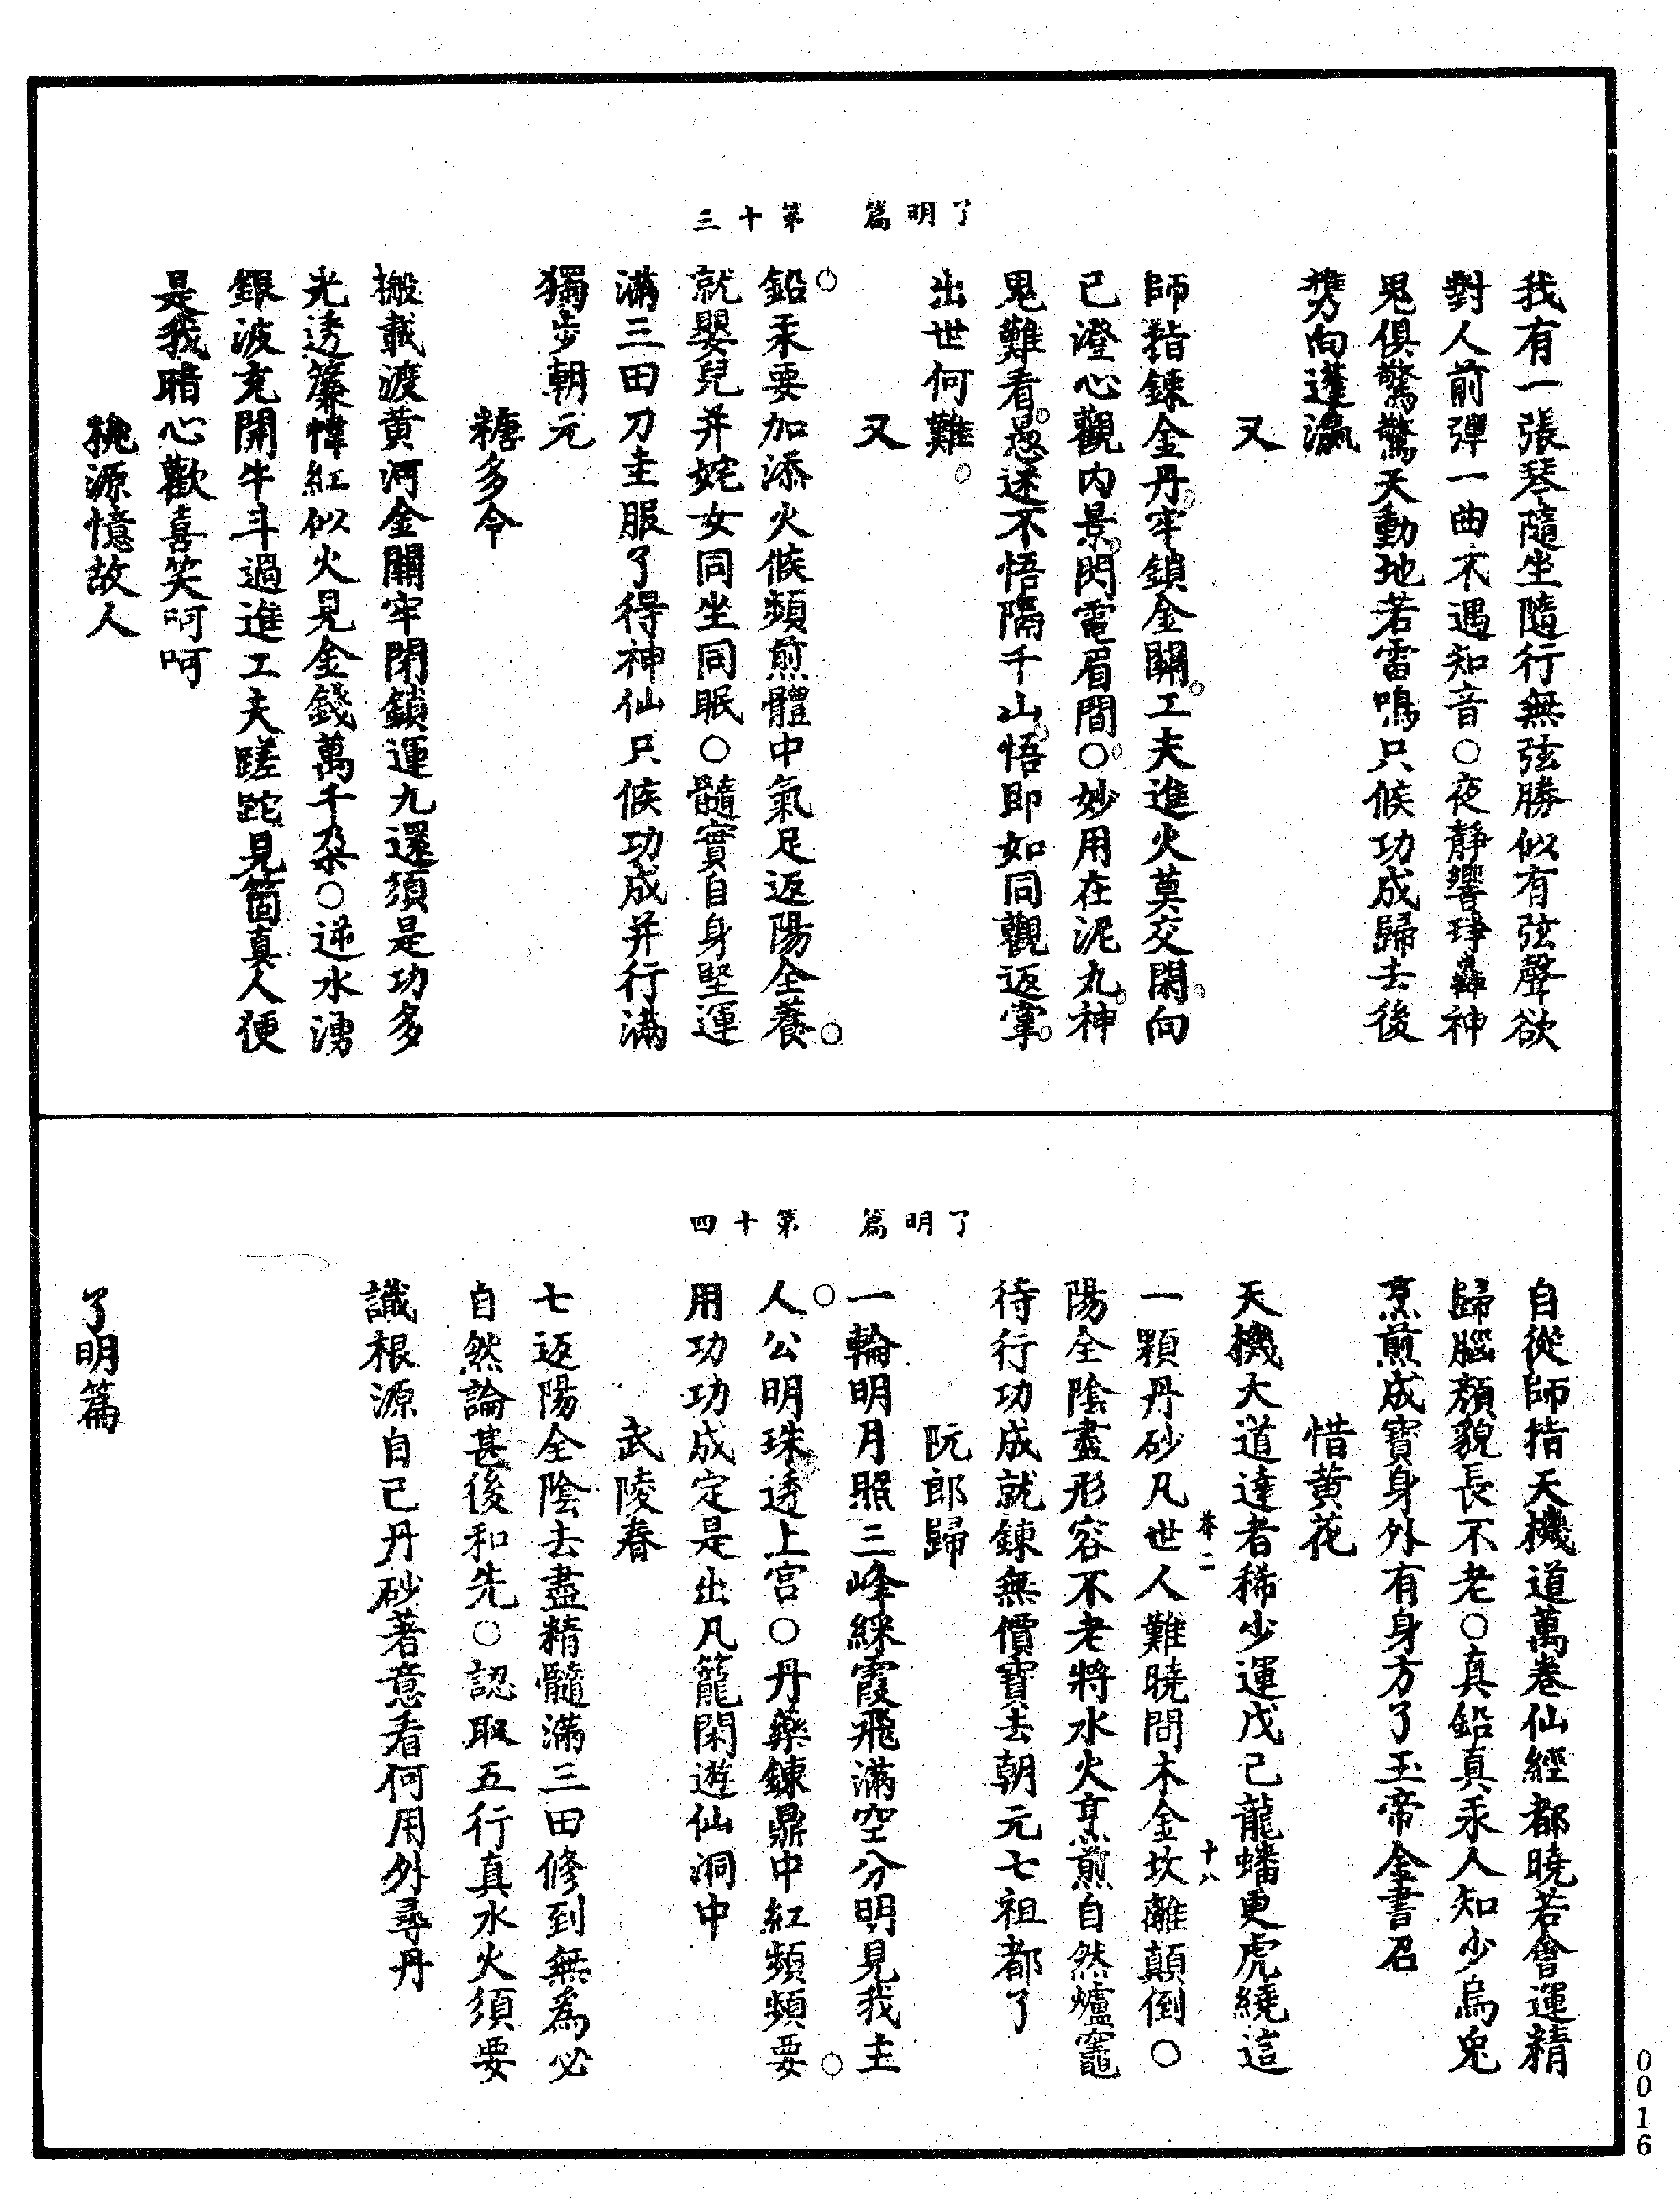 我有一張琴隨坐隨行無弦勝似有弦聲欲
對人前彈一曲不遇知音○夜靜響琤轟神
鬼俱驚驚天動地若雷鳴只候功成歸去後
携向蓬瀛
又
師指鍊金丹牢鎖金關工夫進火莫交閑向
己澄心觀內景閃電眉間○妙用在泥丸神
鬼難看愚迷不悟隔千山悟即如同觀返掌
出世何難
又
了明篇 第十三
鉛汞要加添火候頻煎體中氣足返陽全養
就嬰兒并姹女同坐同眠○髓實自身堅運
滿三田刀圭服了得神仙只候功成并行滿
獨步朝元
糖多令
搬載渡黃河金關牢閉鎖運九還須是功多
光透簾幃紅似火見金錢萬千朶○逆水湧
銀波充開牛斗過進工夫蹉跎見箇真人便
是我暗心歡喜笑呵呵
桃源憶故人
自從師指天機道萬卷仙經都曉若會運精
歸腦顏貌長不老○真鉛真汞人知少烏兔
烹煎成寶身外有身方了玉帝金書召
惜黄花
天機大道達者稀少運戊己龍蟠更虎繞這
卷二 十八
一顆丹砂凡世人難曉問木金坎離顛倒○
陽全陰盡形容不老將水火烹煎自然爐竈
待行功成就鍊無價寶去朝元七祖都了
阮郎歸
了明篇 第十四
一輪明月照三峰綵霞飛滿空分明見我主
人公明珠透上宫○丹藥鍊鼎中紅頻頻要
用功功成定是出凡籠閑遊仙洞中
武陵春
七返陽全陰去盡精髓滿三田修到無為必
自然論甚後和先○認取五行真水火須要
識根源自己丹砂著意看何用外尋丹
了明篇
0016